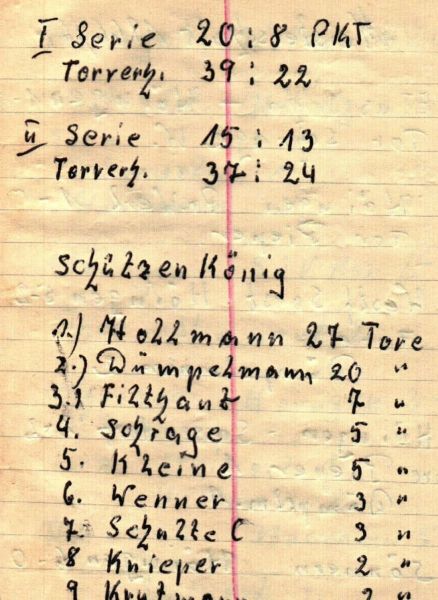 I Serie 20 : 8 PKT
Torverh. 39 : 22
II Serie 15 : 13
Torverh. 37 : 24
Schützenkönig
1.) Hollmann 27 Tore
2.) Dümpelmann 20 "
3.) Filthaut 7 "
4. Schrage 5 "
5. Kheine 5 "
6. Wenner 3 "
7. Schulte C 3 "
8 Knieper 2 "
9 2 "